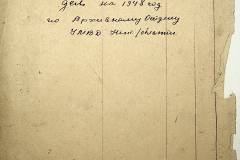 дел на 1948 год
по Архивному Отделу
УМВД